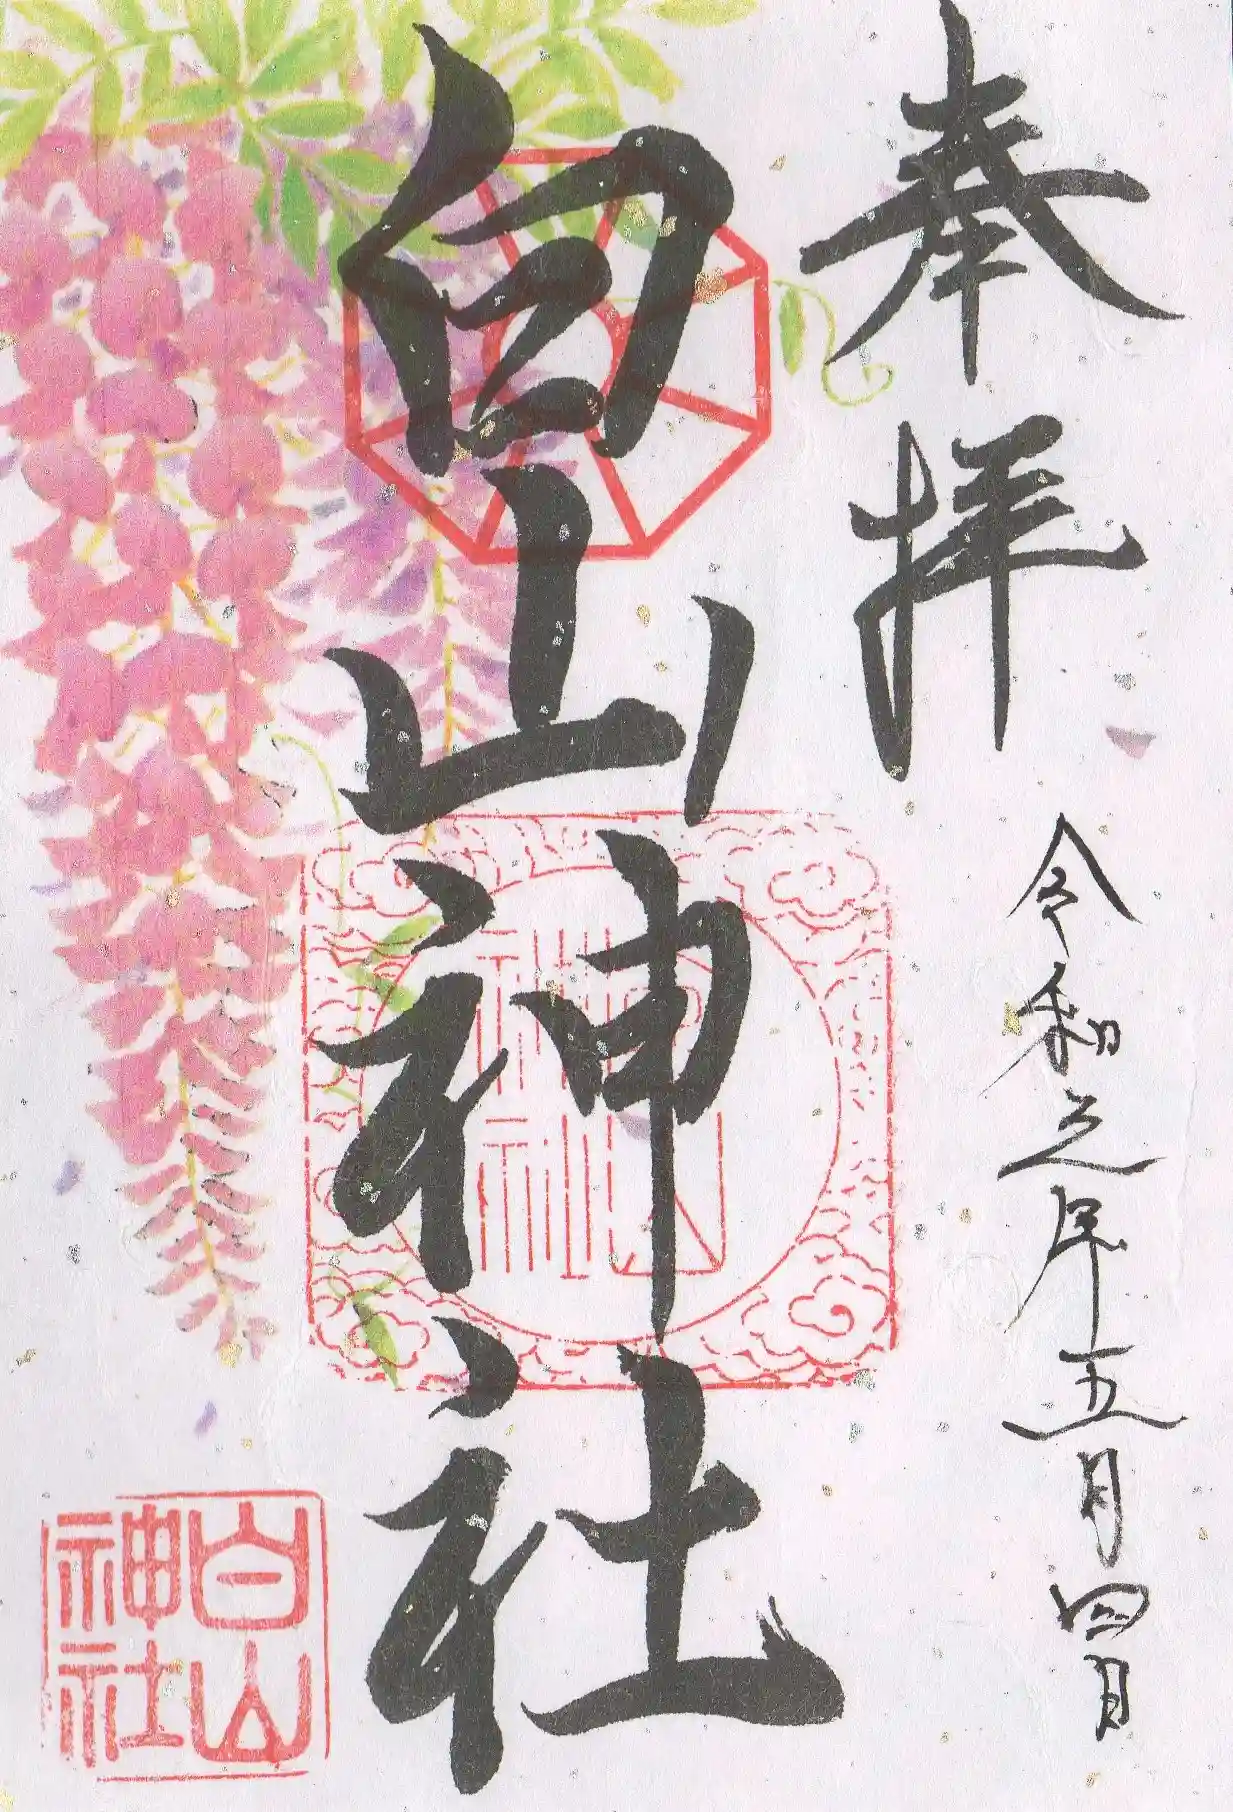 奉拝
令和元年五月四日
白山神社
白山
神社